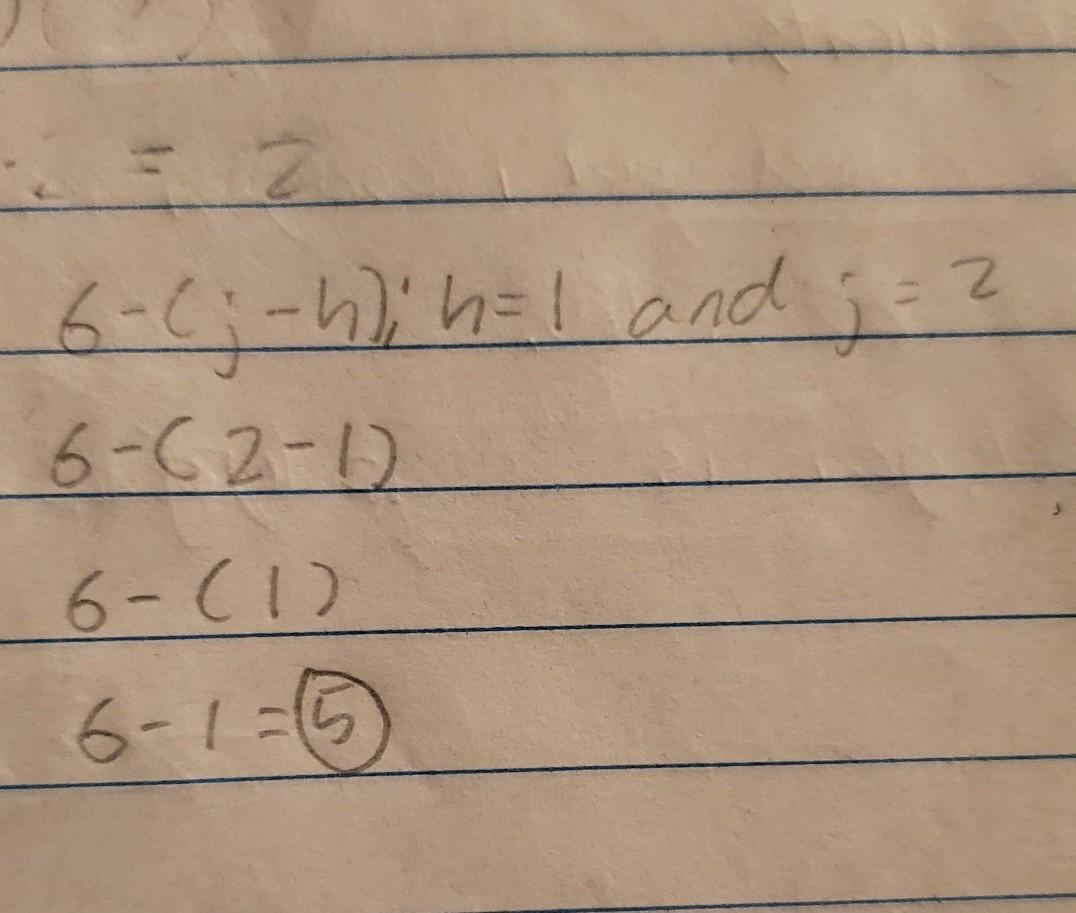 = 2
6-(j-h); h=1 and j=2
6-(2-1)
6-(1)
6-1=5